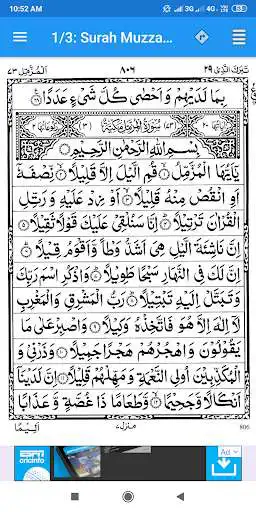 10:52 AM
1/3: Surah Muzza...
تَبٰرَكَ الَّذِیْ ٢٩ ٨٠٦ اَلْمُزَّمِّل ٧٣
بِمَا لَدَیْهِمْ وَاَحْصٰی كُلَّ شَیْءٍ عَدَدًا
بِسْمِ اللهِ الرَّحْمٰنِ الرَّحِیْمِ
یٰۤاَیُّهَا الْمُزَّمِّلُ ۙ قُمِ الَّیْلَ اِلَّا قَلِیْلًا ۙ نِّصْفَهٗۤ
اَوِ انْقُصْ مِنْهُ قَلِیْلًا ۙ اَوْ زِدْ عَلَیْهِ وَرَتِّلِ
الْقُرْاٰنَ تَرْتِیْلًا ؕ اِنَّا سَنُلْقِیْ عَلَیْكَ قَوْلًا ثَقِیْلًا
اِنَّ نَاشِئَةَ الَّیْلِ هِیَ اَشَدُّ وَطْاً وَّاَقْوَمُ قِیْلًا ؕ
اِنَّ لَكَ فِی النَّهَارِ سَبْحًا طَوِیْلًا ؕ وَاذْكُرِ اسْمَ رَبِّكَ
وَتَبَتَّلْ اِلَیْهِ تَبْتِیْلًا ؕ رَبُّ الْمَشْرِقِ وَالْمَغْرِبِ
لَاۤ اِلٰهَ اِلَّا هُوَ فَاتَّخِذْهُ وَكِیْلًا وَاصْبِرْ عَلٰی مَا
یَقُوْلُوْنَ وَاهْجُرْهُمْ هَجْرًا جَمِیْلًا وَذَرْنِیْ وَ
الْمُكَذِّبِیْنَ اُولِی النَّعْمَةِ وَمَهِّلْهُمْ قَلِیْلًا اِنَّ لَدَیْنَاۤ
اَنْكَالًا وَّجَحِیْمًا ۙ وَّطَعَامًا ذَا غُصَّةٍ وَّعَذَابًا
اَلِیْمًا منزل ٧ 806
ESPN
cricinfo
Ad